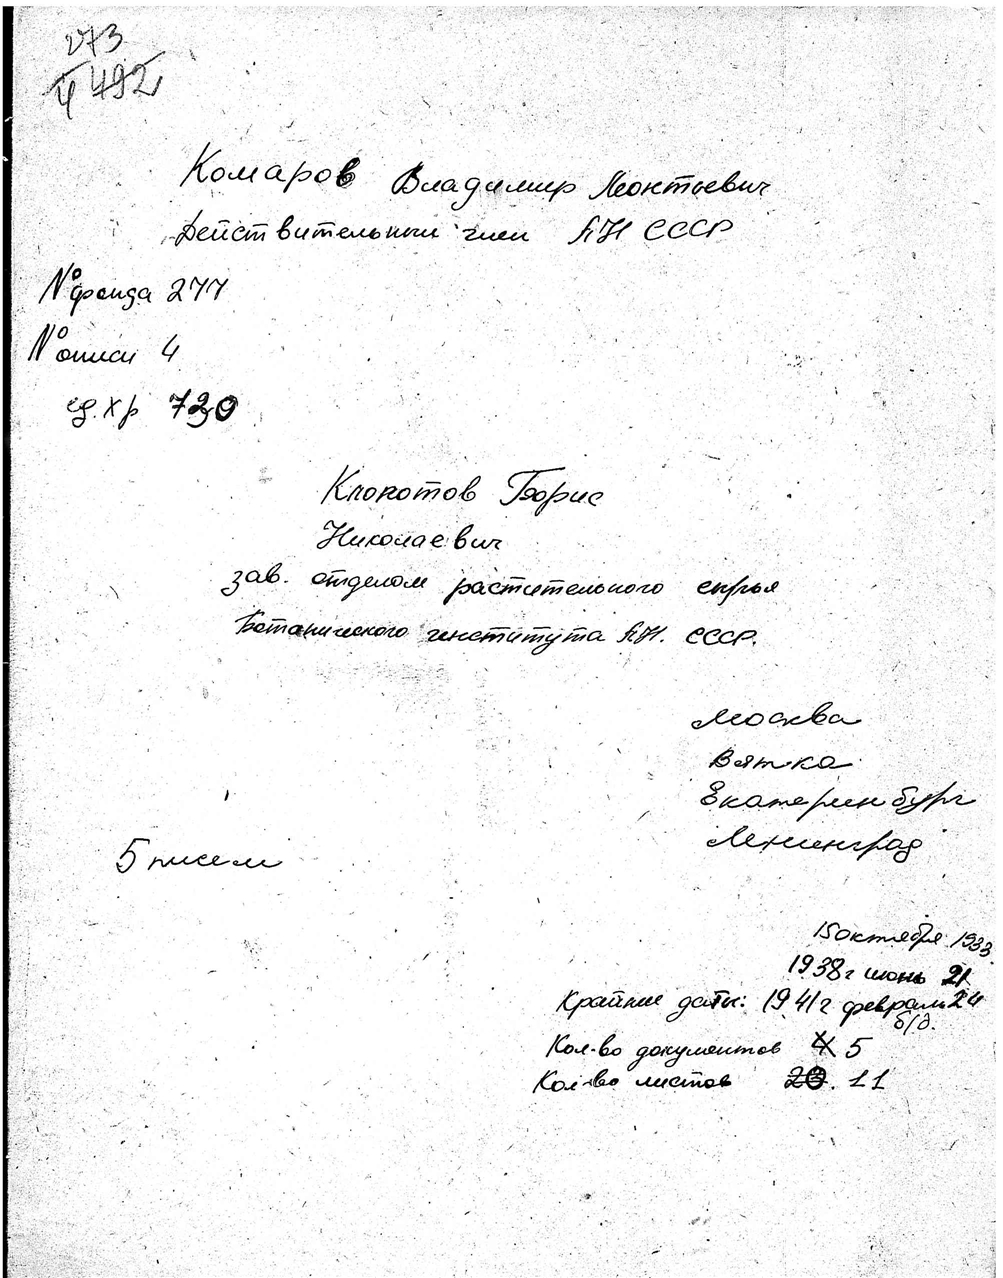 273
4 492
Комаров Владимир Леонтьевич
Действительный член АН СССР
№ фонда 277
№ описи 4
ед. хр 720
Клопотов Борис
Николаевич
зав. отделом растительного сырья
Ботанического института АН. СССР.
Москва
Вятка
Екатеринбург
Ленинград
5 писем
15 октября 1933
1938 г июнь 21
Крайние даты: 1941 г февраль 24
б/д.
Кол-во документов 4 5
Кол-во листов 20. 11